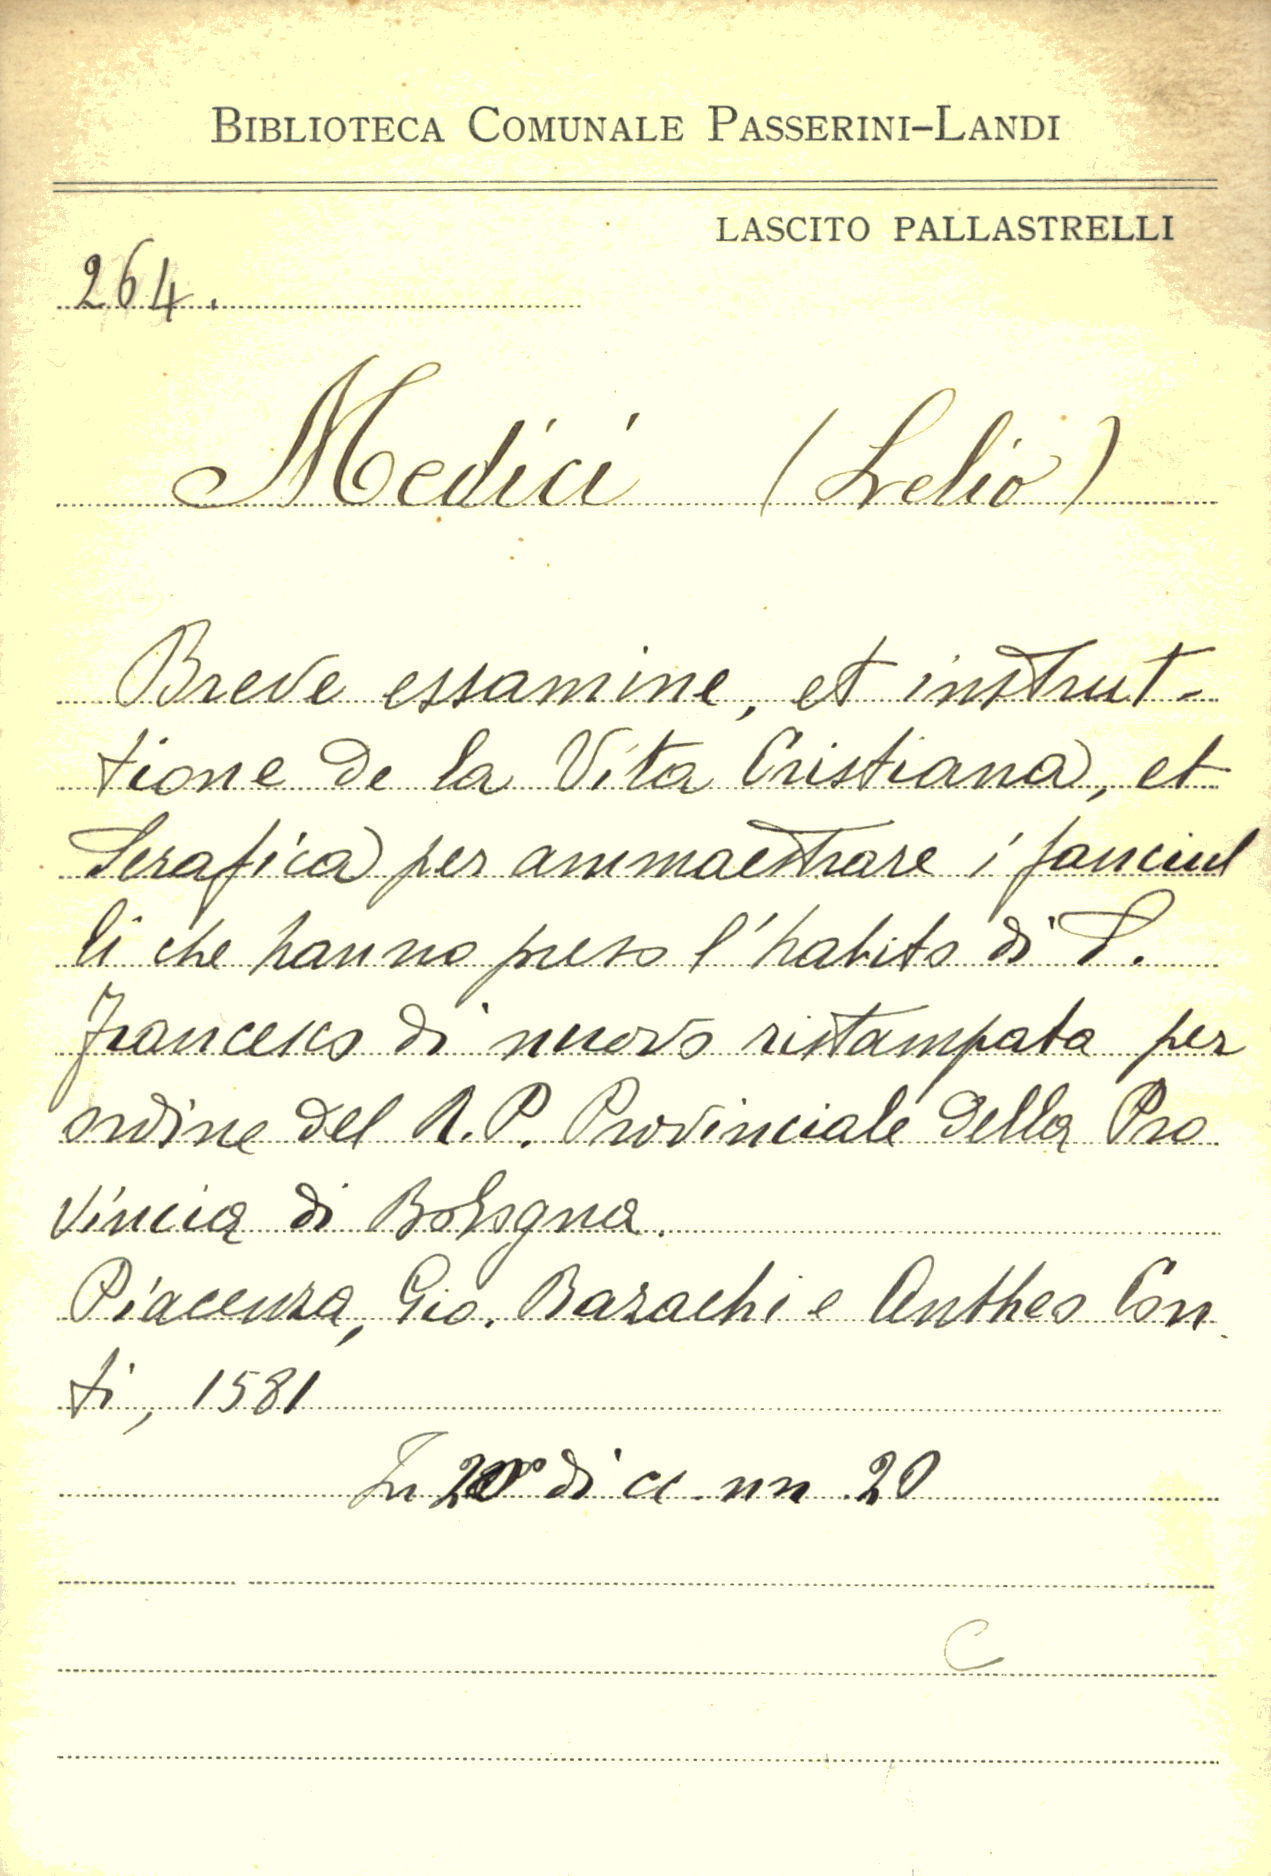 BIBLIOTECA COMUNALE PASSERINI-LANDI
LASCITO PALLASTRELLI
264.
Medici (Lelio)
Breve essamine, et instrut-
tione de la Vita Cristiana, et
Serafica per ammaestrare i fanciul
li che hanno preso l'habito di S.
Francesco di nuovo ristampata per
ordine del R. P. Provinciale della Pro
vincia di Bologna.
Piacenza, Gio. Bazachi e Anteo Con
ti, 1581
In di cc. nn. 20
C